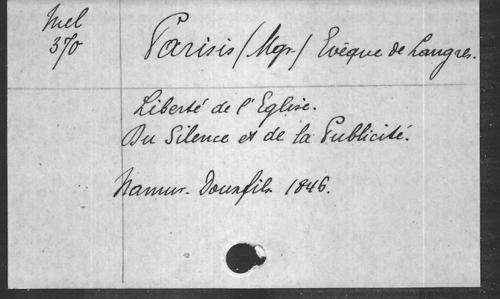 Mel
370
Parisis (Mgr.) Evêque de Langres.
Liberté de l'Eglise.
Du Silence et de la Publicité.
Namur. Douxfils 1846.